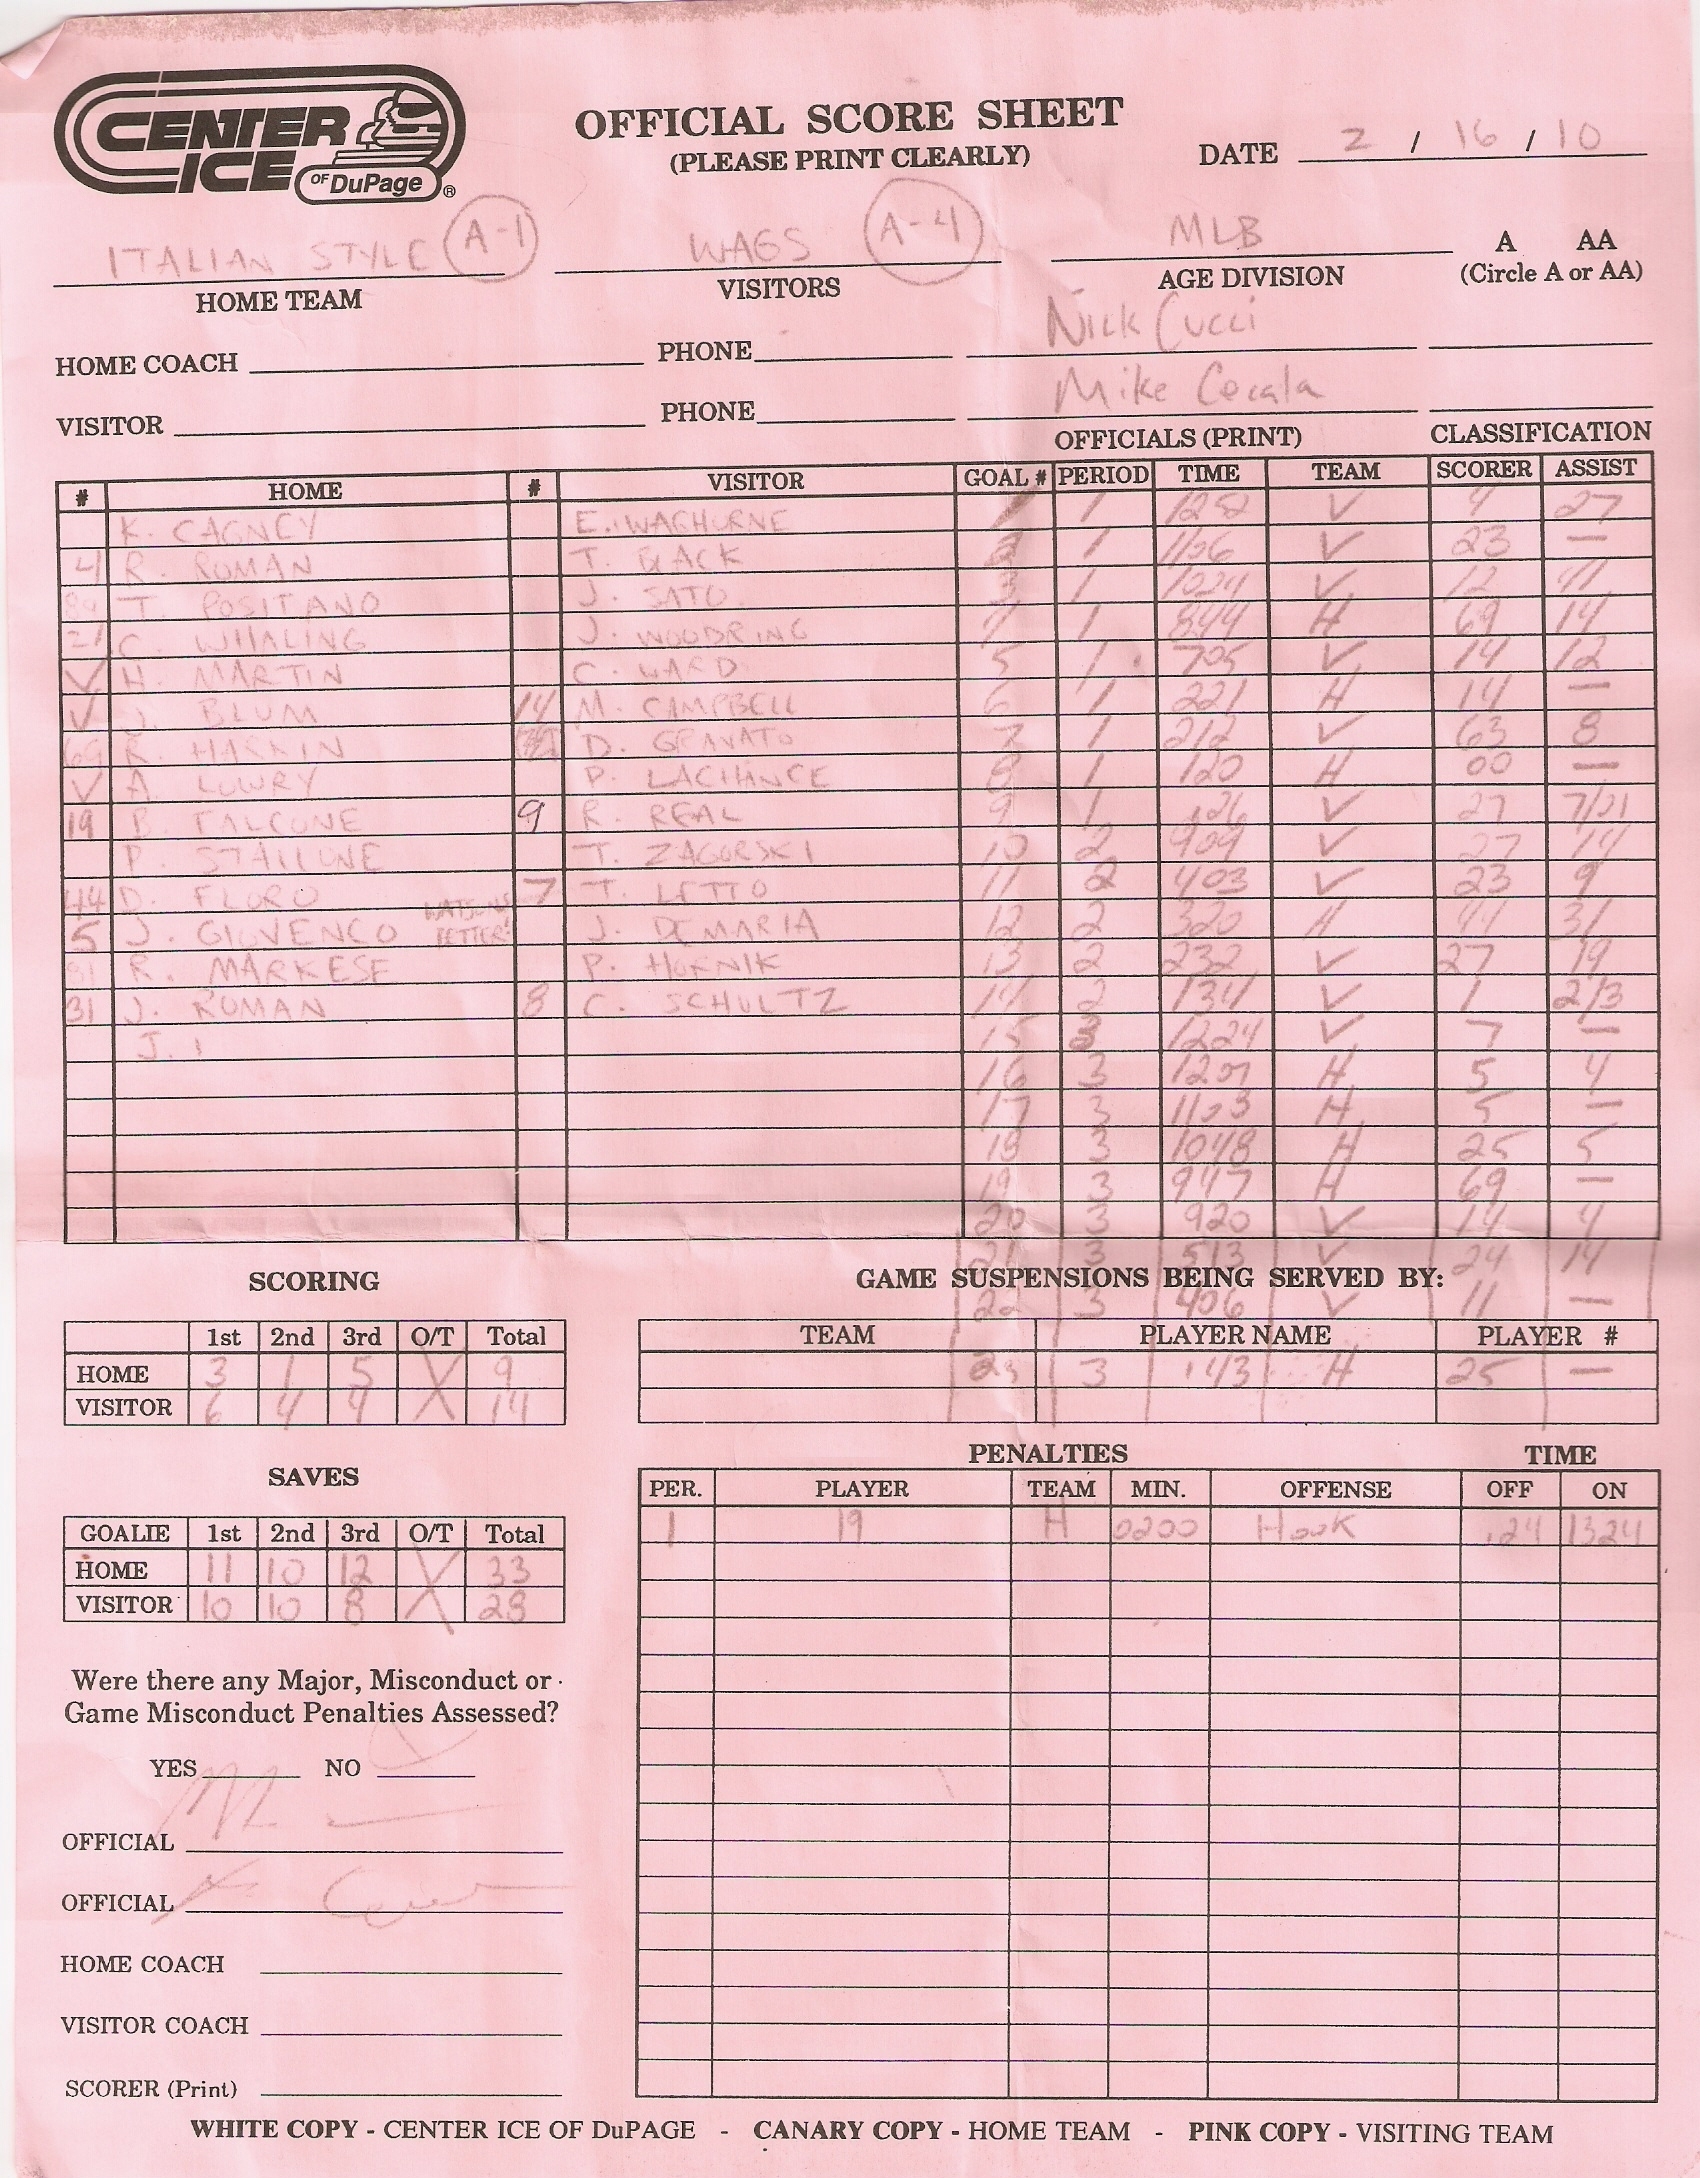 CENTER ICE OF DuPage ®
OFFICIAL SCORE SHEET
(PLEASE PRINT CLEARLY)
DATE 2 / 16 / 10
ITALIAN STYLE A-1 WAGS A-4 MLB A AA
HOME TEAM VISITORS AGE DIVISION (Circle A or AA)
HOME COACH PHONE Nick Cucci
VISITOR PHONE Mike
OFFICIALS (PRINT) CLASSIFICATION
# HOME # VISITOR GOAL # PERIOD TIME TEAM SCORER ASSIST
K. CAGNEY E. WAGHORNE 1 1 1252 V 4 27
4 R. ROMAN T. BLACK 2 1 1106 V 23 —
T. POSITANO J. SATO 3 1 1024 V 12 41
21 C. WHALING J. WOODRING 4 1 844 H 69 14
V H. MARTIN C. WARD 5 1 705 V 14 12
V J. BLUM 14 M. CAMPBELL 6 1 221 H 14 —
69 R. HARKIN D. GRANATO 7 1 212 V 63 8
V A. LOWRY P. LACHANCE 8 1 120 H 00 —
19 B. FALCONE 9 R. REAL 9 1 .26 V 27 7/21
P. STALLONE T. ZAGORSKI 10 2 909 V 27 14
44 D. FLORO 7 T. LETTO 11 2 403 V 23 9
5 J. GIOVENCO WATSONS BETTER! J. DEMARIA 12 2 320 H 44 31
91 R. MARKESE P. HORNIK 13 2 232 V 27 19
31 J. ROMAN 8 C. SCHULTZ 14 2 134 V 1 2/3
J. 15 3 1224 V 7 —
16 3 1207 H 5 4
17 3 1103 H 5 —
18 3 1048 H 25 5
19 3 947 H 69 —
20 3 920 V 14 4
21 3 513 V 24 14
SCORING GAME SUSPENSIONS BEING SERVED BY:
22 3 406 V 11 —
1st 2nd 3rd O/T Total TEAM PLAYER NAME PLAYER #
HOME 3 1 5 X 9 23 3 143 H 25 —
VISITOR 6 4 4 X 14
PENALTIES TIME
SAVES
PER. PLAYER TEAM MIN. OFFENSE OFF ON
GOALIE 1st 2nd 3rd O/T Total 1 19 H 0200 Hook .24 1324
HOME 11 10 12 X 33
VISITOR 10 10 8 X 28
Were there any Major, Misconduct or
Game Misconduct Penalties Assessed?
YES NO
OFFICIAL
OFFICIAL
HOME COACH
VISITOR COACH
SCORER (Print)
WHITE COPY - CENTER ICE OF DuPAGE - CANARY COPY - HOME TEAM - PINK COPY - VISITING TEAM